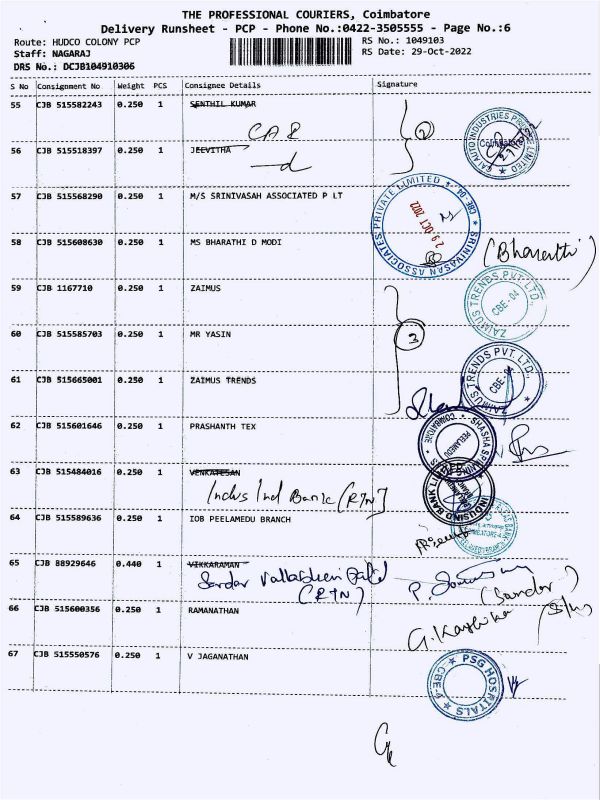 THE PROFESSIONAL COURIERS, Coimbatore
Delivery Runsheet - PCP - Phone No.:0422-3505555 - Page No.:6
Route: HUDCO COLONY PCP
RS No.: 1049103
Staff: NAGARAJ
RS Date: 29-Oct-2022
DRS No.: DCJB104910306
S No Consignment No Weight PCS Consignee Details Signature
55 CJB 515582243 0.250 1 SENTHIL KUMAR
2
56 CJB 515518397 0.250 1 JEEVITHA
Coimbatore
57 CJB 515568290 0.250 1 M/S SRINIVASAH ASSOCIATED P LT
SRINIVASAN ASSOCIATES PRIVATE LIMITED
29 OCT 2022
58 CJB 515608630 0.250 1 MS BHARATHI D MODI
(Bharathi)
59 CJB 1167710 0.250 1 ZAIMUS
ZAIMUS TRENDS PVT. LTD.,
CBE-04
60 CJB 515585703 0.250 1 MR YASIN
3
61 CJB 515665001 0.250 1 ZAIMUS TRENDS
ZAIMUS TRENDS PVT. LTD.,
CBE-04
62 CJB 515601646 0.250 1 PRASHANTH TEX
PEELAMEDU
COIMBATORE
63 CJB 515484016 0.250 1 VENKATESAN
Indus Ind Bank (RTN)
INDUSIND BANK
64 CJB 515589636 0.250 1 IOB PEELAMEDU BRANCH
65 CJB 88929646 0.440 1 VIKKARAMAN
Sardar Vallabhbhai Patel
(RTN)
(Sandar)
66 CJB 515600356 0.250 1 RAMANATHAN
G. Karthika
67 CJB 515550576 0.250 1 V JAGANATHAN
PSG HOSPITALS
CBE-4